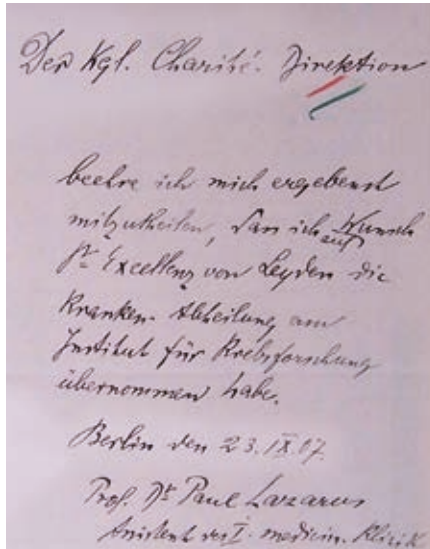 Der Kgl. Charité-Direktion
beehre ich mich ergebenst
mitzutheilen, dass ich auf Wunsch
Sr. Excellenz von Leyden die
Kranken-Abtheilung am
Institut für Krebsforschung
übernommen habe.
Berlin den 23. IX. 07.
Prof. Dr Paul Lazarus
Assistent der I. medicin. Klinik